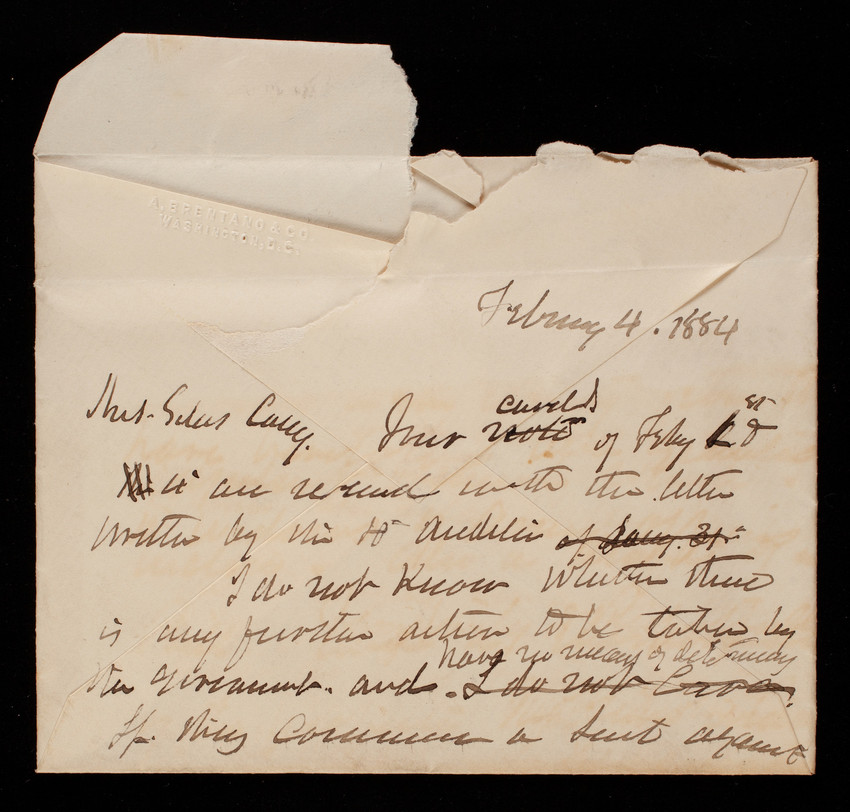 A. BRENTANO & CO
WASHINGTON, D.C.
February 4. 1884
Mrs. Silas Casey. Your note cards of Feby 1st
are received with the letter
written by me to Audelia of Jany. 31.
I do not know whether there
is any further action to be taken by
have no means of determining
the government. and I do not
If they commence a suit against